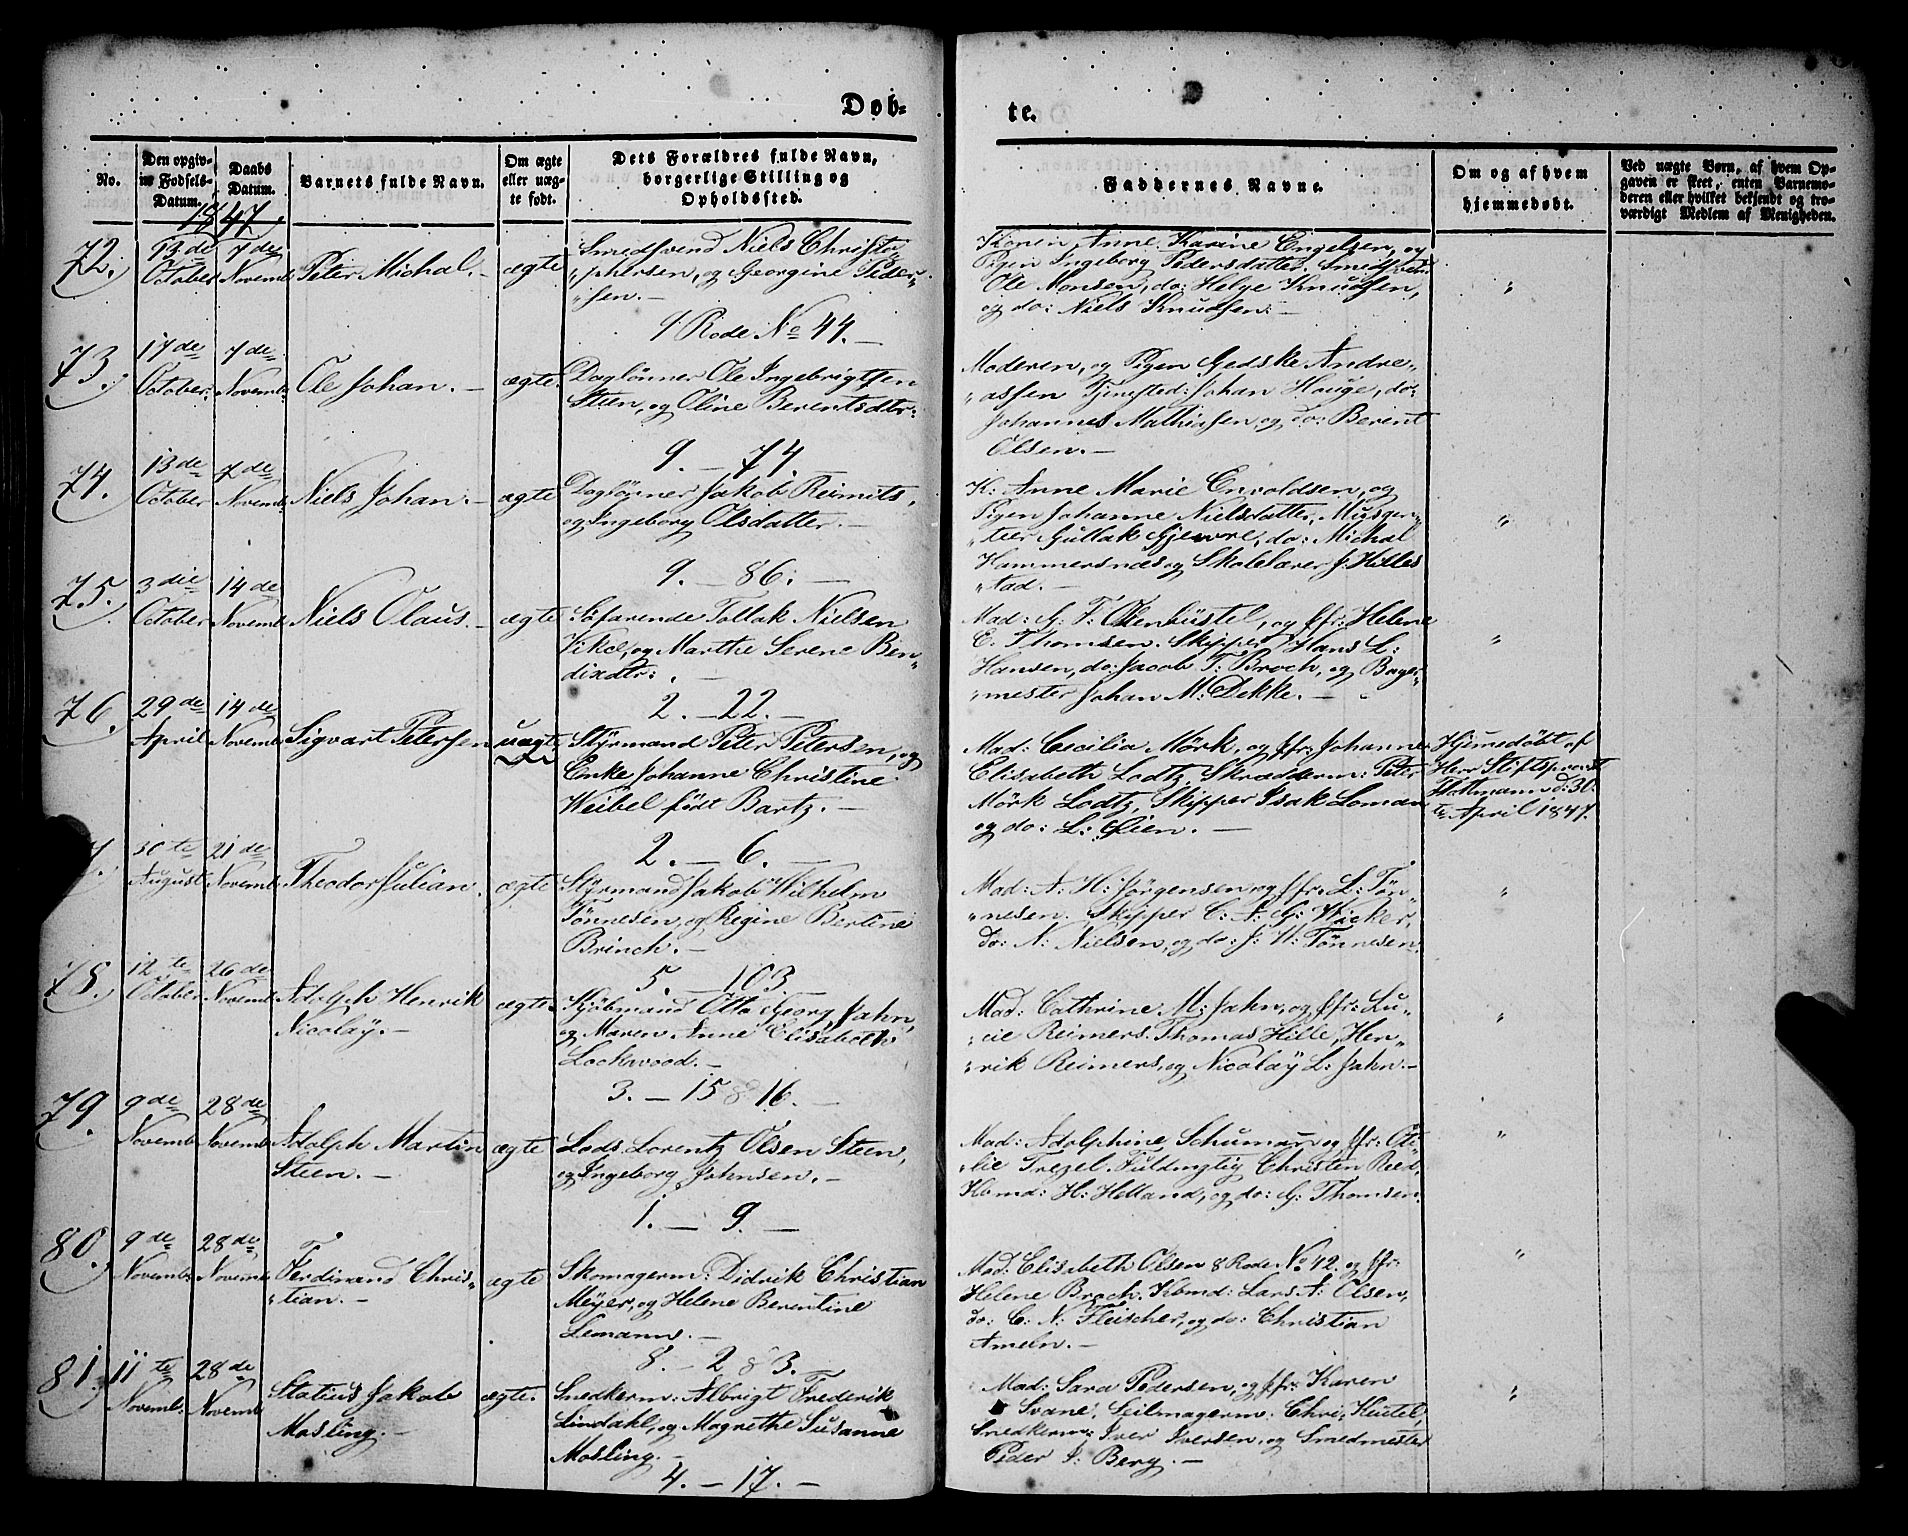 Døb-
te.
No.
Den opgiv-
ne Fødsels-
Datum.
Daabs
Datum.
Barnets fulde Navn.
Om ægte
eller uæg-
te født.
Dets Forældres fulde Navn,
borgerlige Stilling og
Opholdssted.
Faddernes Navne.
Om og af hvem
hjemmedøbt.
Ved uægte Børn, af hvem Op-
gaven er skeet, enten Barnemo-
deren eller hvilket bekjendt og tro-
værdigt Medlem af Menigheden.
1847.
72.
13de
October
7de
Novemb:
Peter Michal. –
ægte
Smedsvend Niels Christo-
„phersen, og Georgine Peder„
„sen. –
9 Rode No 44. –
Konen Anne Karine Engelsen, og
Pigen Ingeborg Pedersdatter. Smedsvend
Ole Monsen, do: Helge Knudsen,
og do: Niels Knudsen. –
„
73.
17de
October:
7de
Novemb:
Ole Johan. –
ægte
Daglønner Ole Ingebrigtsen
Steen, og Oline Berentsdtr:
9. – 74.
Moderen, og Pigen Gedske Andre-
„assen Tjenested: Johan Hauge, do:
Johannes Mathiasen, og do: Berent
Olsen. –
74.
13de
October
7de
Novemb:
Niels Johan. –
ægte
Daglønner Jakob Reimits,
og Ingeborg Olsdatter. –
9. – 86. –
K: Anne Marie Envoldsen, og
Pigen Johanne Nielsdatter,
„teer Guttak Gjerore, do: Michal
Hammersnæs og Skolelærer J: Hilles
„tad. –
„
75.
3die
October
14de
Novemb:
Niels Olaus. –
ægte
Søfarende Tollak Nielsen
Vikæ, og Marthe Serene Ben„
dixdtr: . –
2. – 22. –
Mad: G: F: Olenbüstel, og Jfr: Helene
C. Thomsen. Skipper Hans L:
Hansen, do: Jacob T: Broch, og Byger„
„mester Johan M: Dekke. –
„
76.
29de
April
14de
Novemb:
Sigvart Petersen
uægte
Styrmand Peter Petersen, og
Enke Johanne Christine
Weibel født Bartz. –
2. – 6. –
Mad: Cecilia Mørk, og Jfr: Johanne
Elisabeth Lodtz, Skrædderm: Peter
Mørk Lodtz, Skipper Isak Loman
og do: L: Øien. –
Hjemedøbt af
Herr Stiftsprovst
d: 30
te April 1847.
7.
30te
August
21de
Novemb:
Theodor Julian.
ægte
Styrmand Jakob Wilhelm
Tønnesen, og Regine Bertine
Brinch. –
5. – 103. –
Mad: A: H: Jørgensen, og Jfr: L: Tøn„
„nesen. Skipper C: A: G: Wicker,
do: N: Nielsen, og do: J: W: Tønnesen.
„
78.
12te
October
26de
Novemb:
Adolph Henrik
Nicolaÿ. –
ægte
Kjøbmand Otto Georg Jahn,
og Maren Anne Elisabeth
Lockwood. –
3. – 15 & 16. –
Mad: Cathrine M: Jahn, og Jfr: Lu„
„cie Reimers. Thomas Hille, Hen„
„rik Reimers, og Nicolaÿ L: Jahn. –
„
79.
9de
Novemb:
28de
Novemb:
Adolph Martin
Steen. –
ægte
Lods Lorentz Olsen Steen,
og Ingeborg Johnsen. –
1. – 9. –
Mad: Adolphine Schuman og Jfr: Oti„
„lie Trezel. Fuldmgtig Christen Ried,
Kbmd: H: Helland, og do: G: Thomsen.
„
80.
9de
Novemb:
28de
Novemb:
Ferdinand Chris„
„tian. –
ægte
Skomagerm: Didrik Christian
Meÿer, og Helene Berentine
Lemann. –
8. – 2 & 3. –
Mad: Elisabeth Olsen 8 Rode No 42. og Jfr:
Helene Broch. Kbmd: Lars A: Olsen,
do: C: N: Fleischer, og do: Christian
Ameln. –
„
81.
11te
Novemb:
28de
Novemb:
Statius Jakob
Mosling. –
ægte.
Snedkerm: Albrigt Frederik
Lindahl, og Magrethe Susanne
Mosling. –
4. – 17. –
Mad: Sara Pedersen, og Jfr: Karen
Svane, Seilmagerm: Chri: Kütel,
Snedkerm: Iver Iversen, og Smedmester
Peder I: Berg. –
„